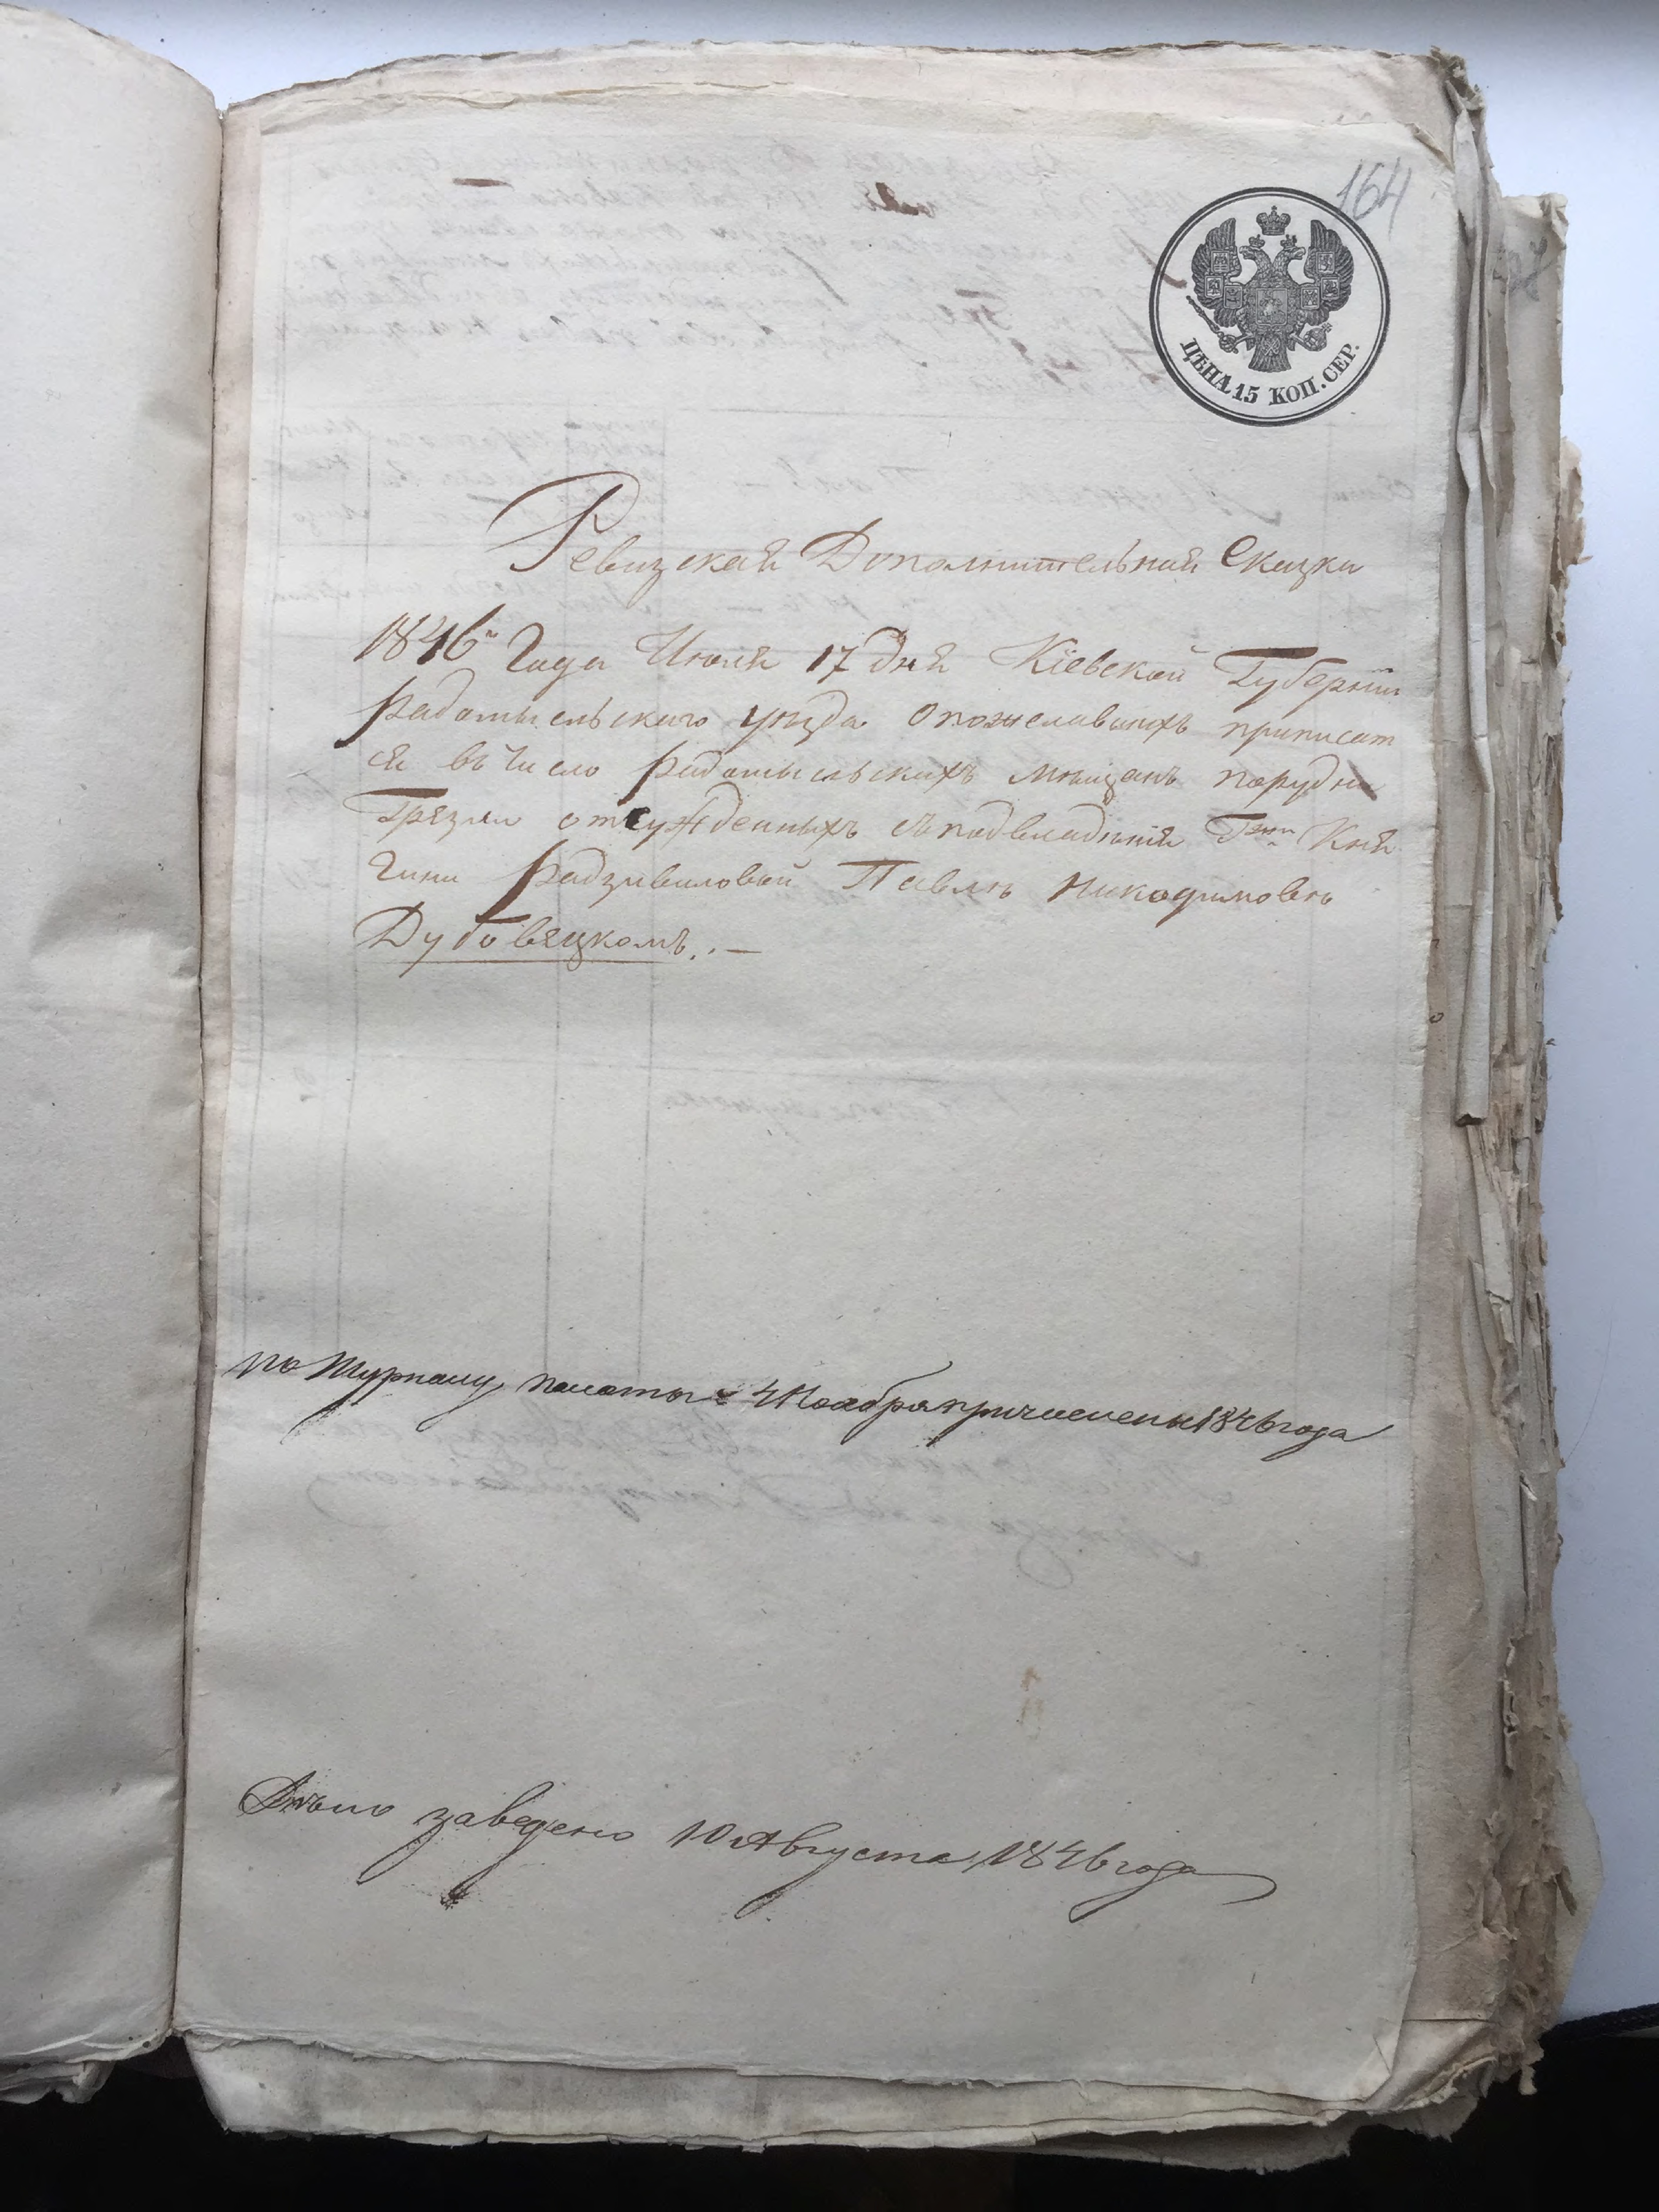 164
ЦѢНА 15 КОП. СЕР.
Ревизская Дополнительная Сказка
1846го Года Июля 17 Дня Кіевской Губерніи
Радомысльскаго уѣзда о пожелавшихъ приписат
ся въ число Радомысльскихъ мѣщанъ
отсужденныхъ съ подвладѣнія Кня
гини Радзивиловой Павлѣ Никодимовѣ
Дубовяцкомъ. —
по Журналу палаты 4 Ноября причислены 1846 года
Дѣло заведено 10 Августа 1846 года